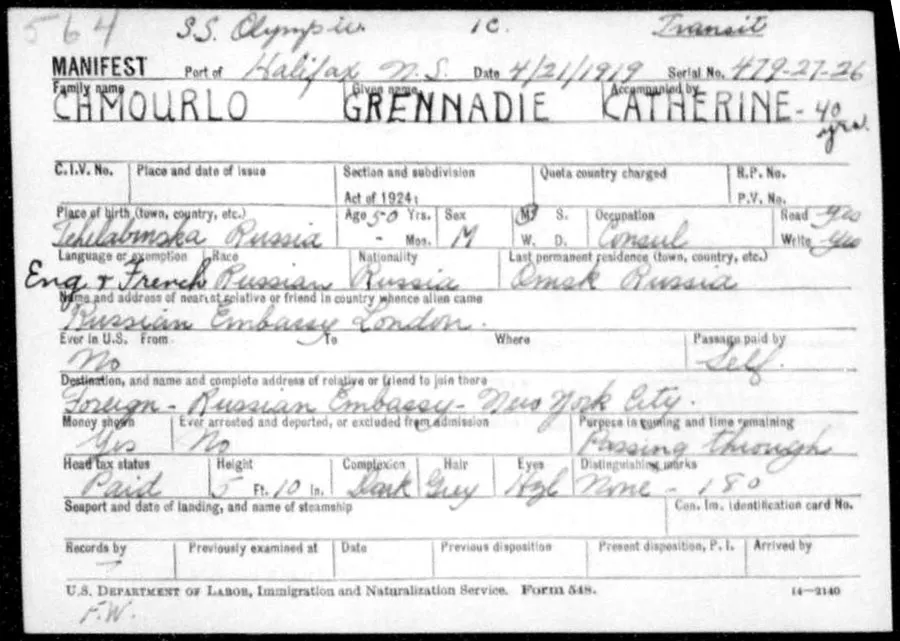 564 S.S. Olympic 1C. Transit
MANIFEST Port of Halifax N.S. Date 4/21/1919 Serial No. 479-27-26
Family name Given name Accompanied by
CHMOURLO GRENNADIE CATHERINE - 40 yrs.
C.I.V. No. Place and date of issue Section and subdivision Quota country charged R.P. No.
Act of 1924: P.V. No.
Place of birth (town, country, etc.) Age 50 Yrs. Sex M S. Occupation Read yes
Tchilabinska Russia - Mos. M W. D. Consul Write yes
Language or exemption Race Nationality Last permanent residence (town, country, etc.)
Eng & French Russian Russia Omsk Russia
Name and address of nearest relative or friend in country whence alien came
Russian Embassy London.
Ever in U.S. From To Where Passage paid by
No Self.
Destination, and name and complete address of relative or friend to join there
Foreign - Russian Embassy - New York City.
Money shown Ever arrested and deported, or excluded from admission Purpose in coming and time remaining
Yes No Passing through
Head tax status Height Complexion Hair Eyes Distinguishing marks
Paid 5 Ft. 10 In. Dark Grey Hzl None - 180
Seaport and date of landing, and name of steamship Con. Im. Identification card No.
Records by Previously examined at Date Previous disposition Present disposition, P. I. Arrived by
U.S. DEPARTMENT OF LABOR, Immigration and Naturalization Service. Form 548. 14—2140
F.W.